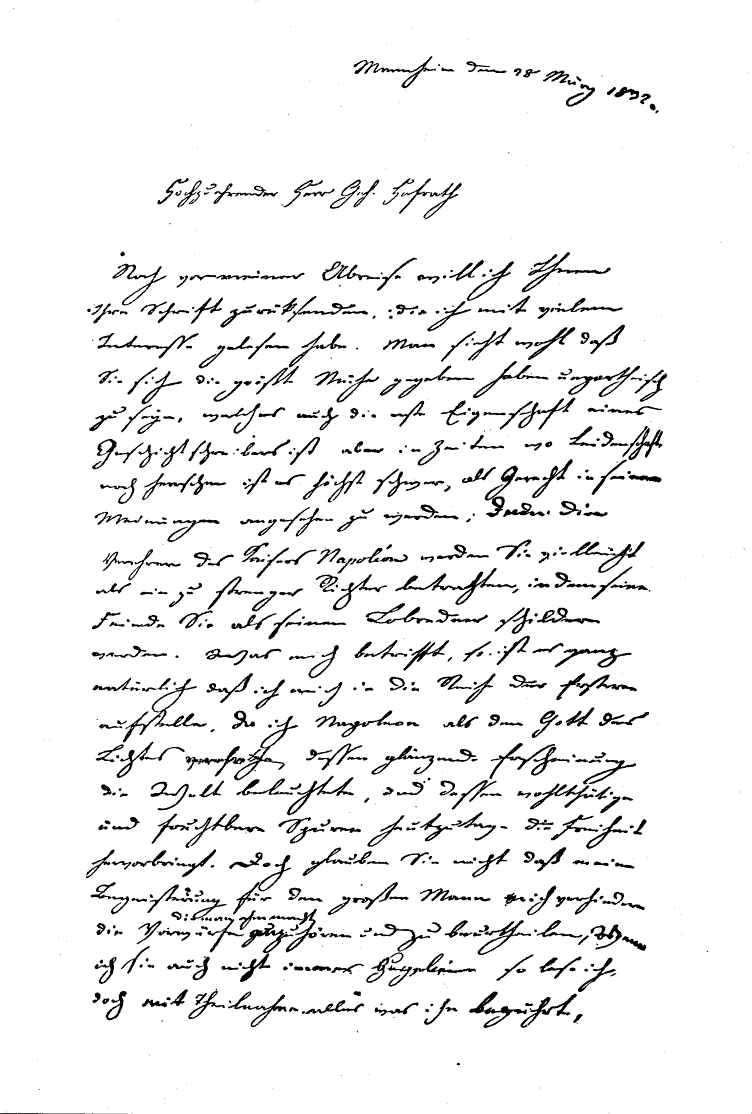 Mannheim den 28 März 1832.
Hochzuehrender Herr Geh. Hofrath
Noch vor meiner Abreise will ich Ihnen
Ihre Schrift zurüksenden, die ich mit vielem
Interesse gelesen habe. Man sieht wohl daß
Sie sich die größte Mühe gegeben haben unpartheisch
zu seyn, welches auch die erste Eigenschaft eines
Geschichtschreibers ist aber in Zeiten wo Leidenschaft
noch herrschen ist es höchst schwer, als Gerecht in seinen
Meinungen angesehen zu werden; Denn die
Verehrer des Kaisers Napoléon werden Sie vielleicht
als ein zu strenger Richter betrachten, indem seine
Feinde Sie als seinen Lobredner schildern
werden. Was mich betrifft, so ist es ganz
natürlich daß ich mich in die Reihe der Erstern
aufstelle, da ich Napoleon als den Gott des
Lichtes verehre, dessen glänzende Erscheinung
die Welt beleuchtete, und dessen wohlthätige
und fruchtbare Spuren heutzutage die Freiheit
hervorbringt. Doch glauben Sie nicht daß meine
Begeisterung für den großen Mann mich verhindere
die man ihm macht
die Vorwürfe anzuhören und zu beurtheilen, Wenn
ich sie auch nicht immer so lese ich,
doch mit Theilnahme alles was ihn berührt,